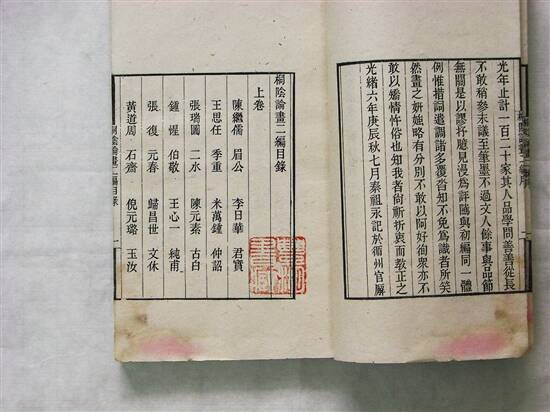 光年止計一百二十家其人品學問善善從長
不敢稍參末議至筆墨不過文人餘事與品節
無關是以謬抒臆見沒為詳隲與初編同一體
例惟措詞遣調諸多覆沓知不免為識者所笑
然畫之妍媸略有分別不敢以阿好徇衆亦不
敢以矯情忤俗也知我者尙祈折衷而敎正之
光緒六年庚辰秋七月秦祖永記於循州官廨
桐陰論畫二編目錄
上卷
陳繼儒 眉公 李日華 君實
王思任 季重 米萬鍾 仲詔
張瑞圖 二水 陳元素 古白
鍾惺 伯敬 王心一 純甫
張復 元春 歸昌世 文休
黃道周 石齋 倪元璐 玉汝
桐陰論畫二編目錄 一